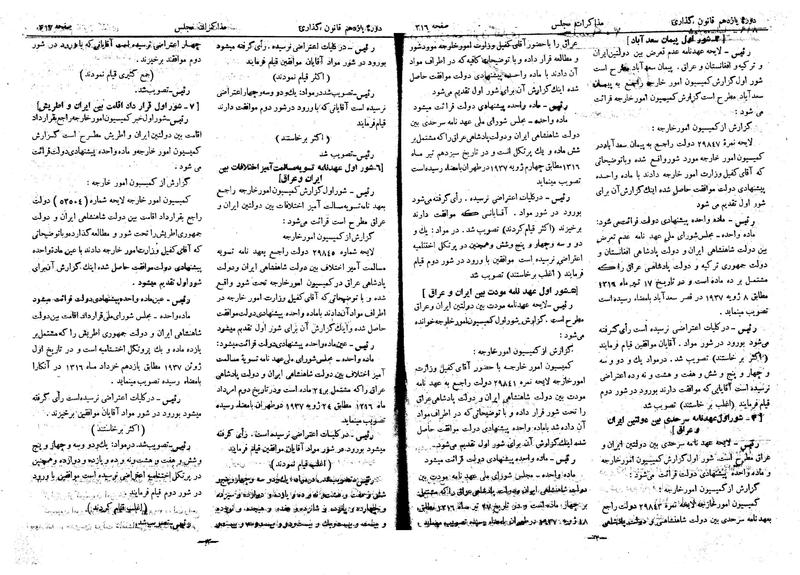 دوره یازدهم قانون گذاری
مذاکرات مجلس
صفحه ۳۱۶
[۳ـ شور اول پیمان سعد آباد]
رئیس - لایحه عهدنامه عدم تعرض بین دولتین ایران
و ترکیه و افغانستان و عراق. پیمان سعدآباد مطرح است
شور اول گزارش کمیسیون امور خارجه راجع به پیمان
سعدآباد مطرح است گزارش کمیسیون امور خارجه قرائت
میشود :
گزارش از کمیسیون امور خارجه
لایحه نمره ۲۹۸۴۷ دولت راجع به پیمان سعدآباد در
کمیسیون امور خارجه مورد شور واقع شده و با توضیحاتی
که آقای کفیل وزارت امور خارجه دادند با ماده واحده
پیشنهادی دولت موافقت حاصل شده اینک گزارش آن برای
شور اول تقدیم می شود
رئیس - ماده واحده پیشنهادی دولت قرائت می شود:
ماده واحده - مجلس شورای ملی عهد نامه عدم تعرض
بین دولت شاهنشاهی ایران و دولت پادشاهی افغانستان و
دولت جمهوری ترکیه و دولت پادشاهی عراق را که
مشتمل بر ده ماده است و در تاریخ ۱۷ تیر ماه ۱۳۱۶
مطابق ۸ ژویه ۱۹۳۷ در قصر سعدآباد بامضاء رسیده است
تصویب مینماید.
رئیس - در کلیات اعتراضی نرسیده است رأی گرفته
میشود بورود در شور مواد . آقایان موافقین قیام فرمایند
(اکثر برخاستند) تصویب شد. در مواد یک و دو و سه
و چهار و پنج و شش و هفت و هشت و نه و ده اعتراضی
نرسیده است آقایانی که موافقند بورود در شور دوم
قیام فرمایند ( اغلب بر خاستند) تصویب شد
[۴ـ شور اول عهدنامه سر حدی بین دولتین ایران
و عراق]
رئیس - شور اول عهدنامه سرحدی بین دولتین ایران و
عراق مطرح است. شور اول گزارش کمیسیون امور خارجه
و ماده واحده پیشنهادی دولت قرائت میشود:
گزارش از کمیسیون امور خارجه
کمیسیون امور خارجه لایحه نمره ۲۹۸۴۳ دولت راجع
بعهد نامه سرحدی بین دولت شاهنشاهی و دولت پادشاهی
عراق را با حضور آقای کفیل وزارت امور خارجه مورد شور
و مطالعه قرار داده و با توضیحات کافیه که در اطراف مواد
آن دادند با ماده واحده پیشنهادی دولت موافقت حاصل
شده اینک گزارش آن برای شور اول تقدیم می شود
رئیس - ماده واحده پیشنهادی دولت قرائت میشود
ماده واحده - مجلس شورای ملی عهد نامه سرحدی بین
دولت شاهنشاهی ایران و دولت پادشاهی عراق را که مشتمل بر
شش ماده و یک پرتکل است و در تاریخ سیزدهم تیر ماه
۱۳۱۶ مطابق چهارم ژویه ۱۹۳۷ در طهران بامضاء رسیده است
تصویب مینماید
رئیس - در کلیات اعتراضی نرسیده. رأی گرفته می شود
بورود در شور مواد . آقایانی که موافقت دارند
برخیزند (اکثر قیام کردند) تصویب شد. در مواد: یک و
دو و سه و چهار و پنج و شش و همچنین در پرتکل اختتامیه
اعتراضی نرسیده است موافقین بورود در شور دوم قیام
فرمایند ( اغلب برخاستند ) تصویب شد
[۵ـ شور اول عهد نامه مودت بین ایران و عراق ]
رئیس - لایحه عهدنامه مودت بین دولتین ایران و عراق
مطرح است . گزارش شور اول کمیسیون امور خارجه خوانده
می شود:
گزارش از کمیسیون امور خارجه :
کمیسیون امور خارجه با حضور آقای کفیل وزارت
امور خارجه لایحه نمره ۲۹۸۴۱ دولت راجع به عهد نامه
مودت بین دولت شاهنشاهی ایران و دولت پادشاهی عراق
را تحت شور قرار داد و با توضیحاتی که در اطراف مواد
آن داده شد باماده واحده پیشنهادی دولت موافقت حاصل
شده اینک گزارش آن برای شور اول تقدیم می شود
رئیس - ماده واحده پیشنهادی دولت قرائت میشود.
ماده واحده - مجلس شورای ملی عهد نامه مودت بین
دولت شاهنشاهی ایران و دولت پادشاهی عراق را که مشتمل
بر چهار ماده است و در تاریخ ۲۷ تیر ماه ۱۳۱۶ مطابق
۱۸ ژویه ۱۹۳۷ در طهران بامضاء رسیده است تصویب مینماید
مذاکرات مجلس
صفحه ۳۱۷
رئیس - در کلیات اعتراضی نرسیده. رأی گرفته میشود
بورود در شور مواد آقایان موافقین قیام فرمایند
(اکثر قیام نمودند)
رئیس - تصویب شد. در مواد: یک و دو و سه و چهار اعتراضی
نرسیده است آقایانی که با ورود در شور دوم موافقت دارند
قیام فرمایند
(اکثر برخاستند)
رئیس - تصویب شد
[۶ـ شور اول عهدنامه تسویه مسالمت آمیز اختلافات بین
ایران و عراق]
رئیس - شور اول گزارش کمیسیون امور خارجه راجع به
عهد نامه تسویه مسالمت آمیز اختلافات بین دولتین ایران و
عراق مطرح است قرائت می شود :
گزارش از کمیسیون امور خارجه
لایحه شماره ۲۹۸۴۵ دولت راجع بعهد نامه تسویه
مسالمت آمیز اختلاف بین دولت شاهنشاهی ایران و دولت
پادشاهی عراق در کمیسیون امور خارجه تحت شور واقع
شده و با توضیحاتی که آقای کفیل وزارت امور خارجه در
اطراف مواد آن دادند با ماده واحده پیشنهادی دولت موافقت
حاصل شده و اینک گزارش آن برای شور اول تقدیم میشود
رئیس - عین ماده واحده پیشنهادی دولت قرائت میشود:
ماده واحده - مجلس شورای ملی عهد نامه تسویه مسالمت
آمیز اختلاف بین دولت شاهنشاهی ایران و دولت پادشاهی
عراق را که مشتمل بر ۲۴ ماده است و در تاریخ دوم امرداد
ماه ۱۳۱۶ مطابق ۲۴ ژویه ۱۹۳۷ در طهران بامضاء رسیده
تصویب مینماید .
رئیس - در کلیات اعتراضی نرسیده است . رأی گرفته
میشود بورود در شور مواد. آقایان موافقین برخیزند .
(اغلب قیام نمودند )
رئیس - تصویب شد . در مواد یک و دو و سه و چهار و پنج و
شش و هفت و هشت و نه و ده و یازده و دوازده و سیزده
و چهارده و پانزده و شانزده و هفده و هیجده و نوزده
و بیست و بیست و یک و بیست و دو و بیست و سه و بیست و
چهار اعتراضی نرسیده است آقایانی که با ورود در شور
دوم موافقند برخیزند
(جمع کثیری قیام نمودند)
رئیس - تصویب شد
[۷ ـ شور اول قرار داد اقامت بین ایران و اطریش]
رئیس - شور اول خبر کمیسیون امور خارجه راجع بقرارداد
اقامت بین دولتین ایران و اطریش مطرح است گزارش
کمیسیون امور خارجه و ماده واحده پیشنهادی دولت قرائت
می شود .
گزارش از کمیسیون امور خارجه :
کمیسیون امور خارجه لایحه شماره (۵۳۵۰۴) دولت
راجع بقرارداد اقامت بین دولت شاهنشاهی ایران و دولت
جمهوری اطریش را تحت شور و مطالعه گذارده و با توضیحاتی
که آقای کفیل وزارت امور خارجه دادند با عین ماده واحده
پیشنهادی دولت موافقت حاصل شده اینک گزارش آن برای
شور اول تقدیم میشود .
رئیس - عین ماده واحده پیشنهادی دولت قرائت میشود
ماده واحده - مجلس شورای ملی قرارداد اقامت بین دولت
شاهنشاهی ایران و دولت جمهوری اطریش را که مشتمل بر
یازده ماده و یک پروتکل اختتامیه است و در تاریخ اول
ژوئن ۱۹۳۷ مطابق یازدهم خرداد ماه ۱۳۱۶ در آنکارا
بامضاء رسیده تصویب مینماید
رئیس - در کلیات اعتراضی نرسیده است رأی گرفته
میشود بورود در شور مواد آقایان موافقین برخیزند .
(اکثر برخاستند )
رئیس - تصویب شد. در مواد: یک و دو و سه و چهار و پنج
و شش و هفت و هشت و نه و ده و یازده و همچنین
در پرتکل اختتامیه اعتراضی نرسیده است. موافقین بورود
در شور دوم قیام فرمایند
(اغلب قیام کردند)
رئیس - تصویب شد.